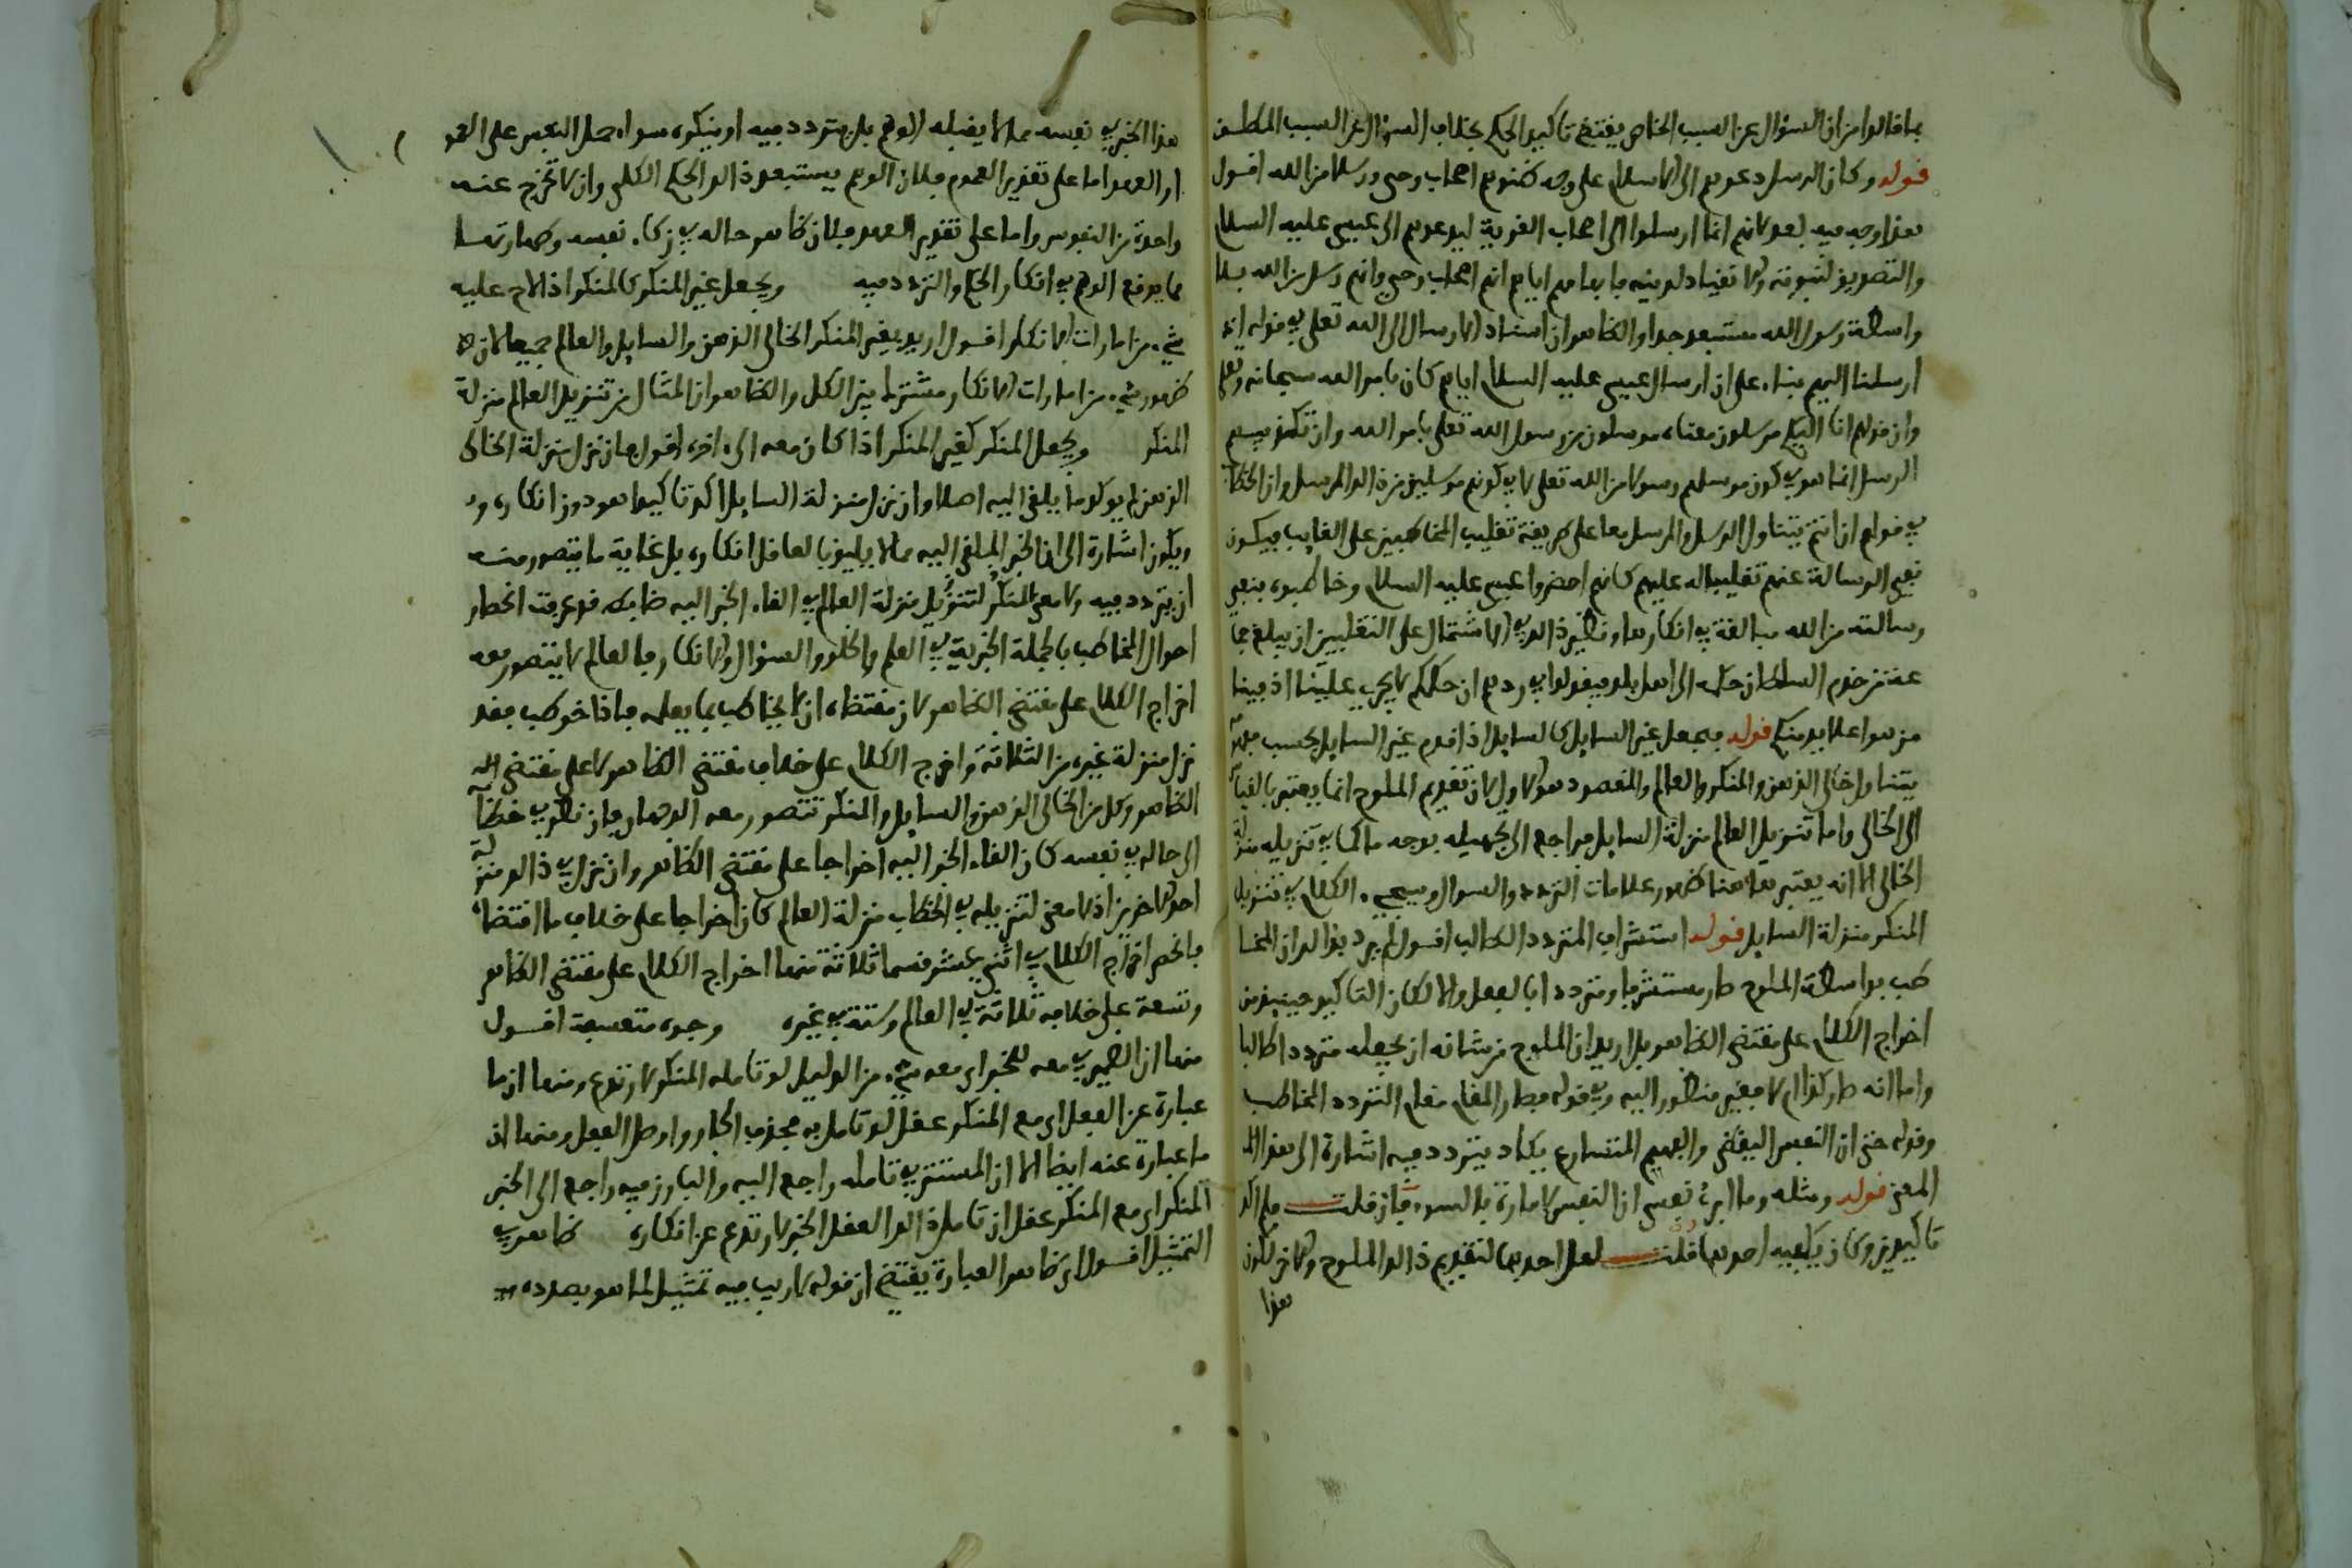 بما قالوا من ان السؤال عن السبب الخاص يقتضي تاكيد الحكم بخلاف السؤال عن السبب المطلق
قوله وكان الرسل دعوهم الى الاسلام على وجه ظنوهم اصحاب وحي ورسلا من الله اقول
هذا وجه فيه بعد لانهم انما ارسلوا الى اصحاب القرية ليدعوهم الى عيسى عليه السلام
والتصديق لنبوته والانقياد لدينه فايهامهم اياهم انهم اصحاب وحي وانهم رسل من الله بلا
واسطة رسول الله مستبعد جدا والظاهر ان اسناد الارسال الى الله تعلى في قوله اذ
ارسلنا اليهم بناء على ان ارسال عيسى عليه السلام اياهم كان بامر الله سبحانه وتعلى
وان قولهم انا اليكم مرسلون معناه مرسلون من رسول الله تعلى بامر الله وان تكذيبهم
الرسل انما هو في كون مرسلهم رسولا من الله تعلى لا في كونهم مرسلين من ذلك المرسل وان الخطاب
في قولهم ان انتم يتناول الرسل والمرسل معا على طريقة تغليب المخاطبين على الغايب فيكون
نفي الرسالة عنهم تغليبا له عليهم كانهم احضروا عيسى عليه السلام وخاطبوه بنفي
رسالته من الله مبالغة في انكارها ونظير ذلك في الاشتمال على التغليبين ان يبلغ جما
عة من خدم السلطان حكمه الى اهل بلد فيقولوا في ردهم ان حكمكم لا يجري علينا اذ فينا
من هو اعلا يد منكم قوله فيجعل غير السايل كالسايل اذا قدم غير السايل بحسب مفهومه
يتناول خالي الذهن والمنكر والعالم والمقصود هو الاول لان تقديم الملوح انما يعتبر بالقياس
الى الخالي واما تنزيل العالم منزلة السايل فراجع الى تجهيله بوجه ما كما في تنزيله منزلة
الخالي الا انه يعتبر هاهنا ظهور علامات التردد والسوال وسيجيء الكلام في تنزيل
المنكر منزلة السايل قوله استشراف المتردد الطالب اقول لم يرد بذلك ان المخا
طب بواسطة الملوح صار مستشرفا ومترددا بالفعل والا لكان التاكيد حينيذ من
اخراج الكلام على مقتضى الظاهر بل اريد ان الملوح من شانه ان يجعله مترددا طالبا
واما انه صار كذا ام لا فغير منظور اليه وفي قوله فصار المقام مقام التردد المخاطب
وقوله حتى ان النفس اليقظى والفهم المتسارع يكاد يتردد فيه اشارة الى هذا
المعنى قوله ومثله وما ابرئ نفسي ان النفس لامارة بالسوء فان قلت فلم اكد
تاكيدين وكان يكفيه احدهما قلت لعل احدهما لتقديم ذلك الملوح والاخر لكون
هذا
هذا الخبر في نفسه مما لا يقبله الوهم بل يتردد فيه او ينكره سواء حمل النفس على العموم
او العهد اما على تقدير العموم فلان الوهم يستبعد ذلك الحكم الكلي وان لا تخرج عنه
واحدة من النفوس واما على تقدير العهد فلان ظاهر حاله في زكاء نفسه وطهارتها
مما يوقع الوهم في انكار الحكم والتردد فيه ويجعل غير المنكر كالمنكر اذا لاح عليه
شيء من امارات الانكار اقول اريد بغير المنكر الخالي الذهن والسايل والعالم جميعا لان
ظهور شيء من امارات الانكار مشترك بين الكل والظاهر ان المثال من تنزيل العالم منزلة
المنكر ويجعل المنكر كغير المنكر اذا كان معه الى اخره اقول فان نزل منزلة الخالي
الذهن لم يوكد ما يلقى اليه اصلا وان نزل منزلة السايل اكد تاكيدا هو دون انكاره
ويكون اشارة الى ان الخبر الملقى اليه مما لا يليق بالعاقل انكاره بل غاية ما يتصور منه
ان يتردد فيه ولا معنى لتنزيل المنكر منزلة العالم في القاء الخبر اليه ضابطه قد عرفت انحصار
احوال المخاطب بالجملة الخبرية في العلم والخلو والسؤال والانكار فالعالم لا يتصور معه
اخراج الكلام على مقتضى الظاهر لان مقتضاه ان لا يخاطب بما يعلمه فاذا خوطب فقد
نزل منزلة غيره من الثلاثة واخرج الكلام على خلاف مقتضى الظاهر لا على مقتضى
الظاهر وكل من الخالي الذهن والسايل والمنكر تتصور معه الوجهان فان نظر في خطابه
الى حاله في نفسه كان القاء الخبر اليه اخراجا على مقتضى الظاهر وان نزل في ذلك منزلة
احد الاخرين اذ لا معنى لتنزيله في الخطاب منزلة العالم كان اخراجا على خلاف ما اقتضاه
فانحصر اخراج الكلام في اثني عشر قسما ثلاثة منها اخراج الكلام على مقتضى الظاهر
وتسعة على خلافه ثلاثة في العالم وستة في غيره وجوه متعسفة اقول
منها ان الضمير في معه للخبر اي معه شيء من الدليل لو تامله المنكر لارتدع ومنها ان ما
عبارة عن العقل اي مع المنكر عقل لو تامل به فحذف الجار واوصل الفعل ومنها ان
ما عبارة عنه ايضا الا ان المستتر في تامله راجع اليه والبارز فيه راجع الى الخبر
المنكر اي مع المنكر عقل ان تامل ذلك العقل الخبر لارتدع عن انكاره ظاهر في
التمثيل اقول اي ظاهر العبارة يقتضي ان قوله لا ريب فيه تمثيل لما هو بصدده